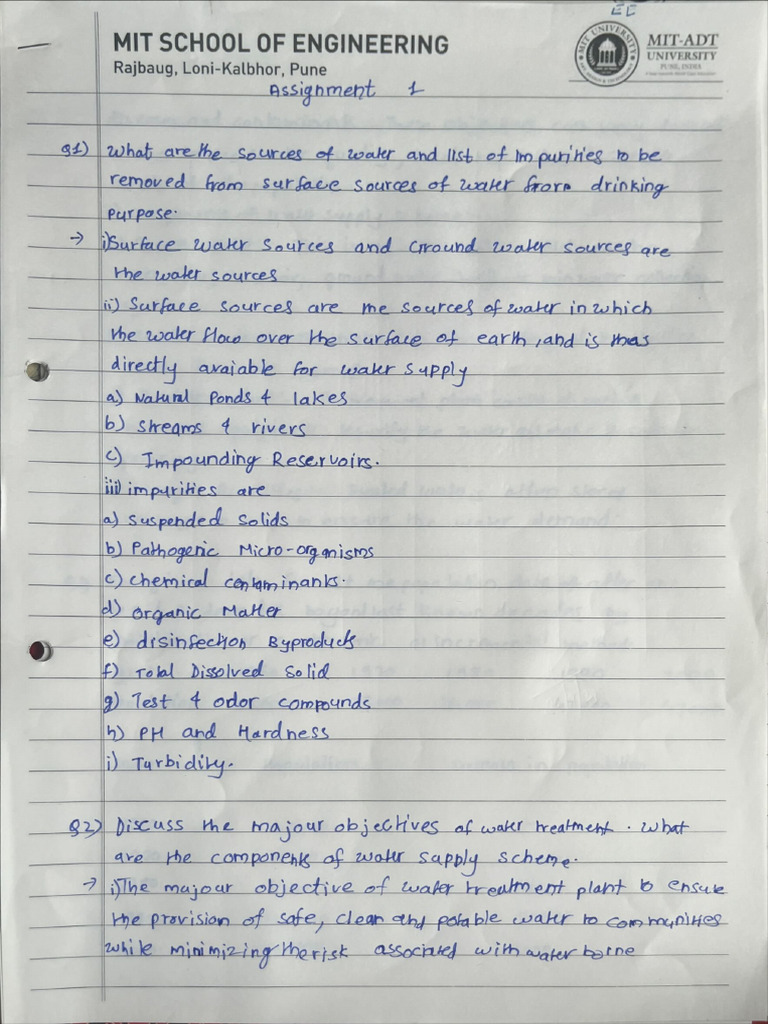 EE
MIT SCHOOL OF ENGINEERING
Rajbaug, Loni-Kalbhor, Pune
MIT-ADT
UNIVERSITY
PUNE, INDIA
MIT UNIVERSITY
Assignment 1
Q1) What are the sources of water and list of impurities to be
removed from surface sources of water from drinking
purpose.
→ i) Surface water sources and Ground water sources are
the water sources
ii) Surface sources are the sources of water in which
the water flow over the surface of earth, and is thus
directly avaiable for water supply
a) Natural Ponds & lakes
b) Streams & rivers
c) Impounding Reservoirs.
iii) impurities are
a) Suspended Solids
b) Pathogenic Micro-organisms
c) Chemical contaminants.
d) organic Matter
e) disinfection Byproducts
f) Total Dissolved Solid
g) Test & odor compounds
h) PH and Hardness
i) Turbidity.
Q2) Discuss the majour objectives of water treatment. What
are the components of water supply scheme.
→ i) The majour objective of water treatment plant to ensure
the provision of safe, clean and potable water to communities
while minimizing the risk associated with water borne